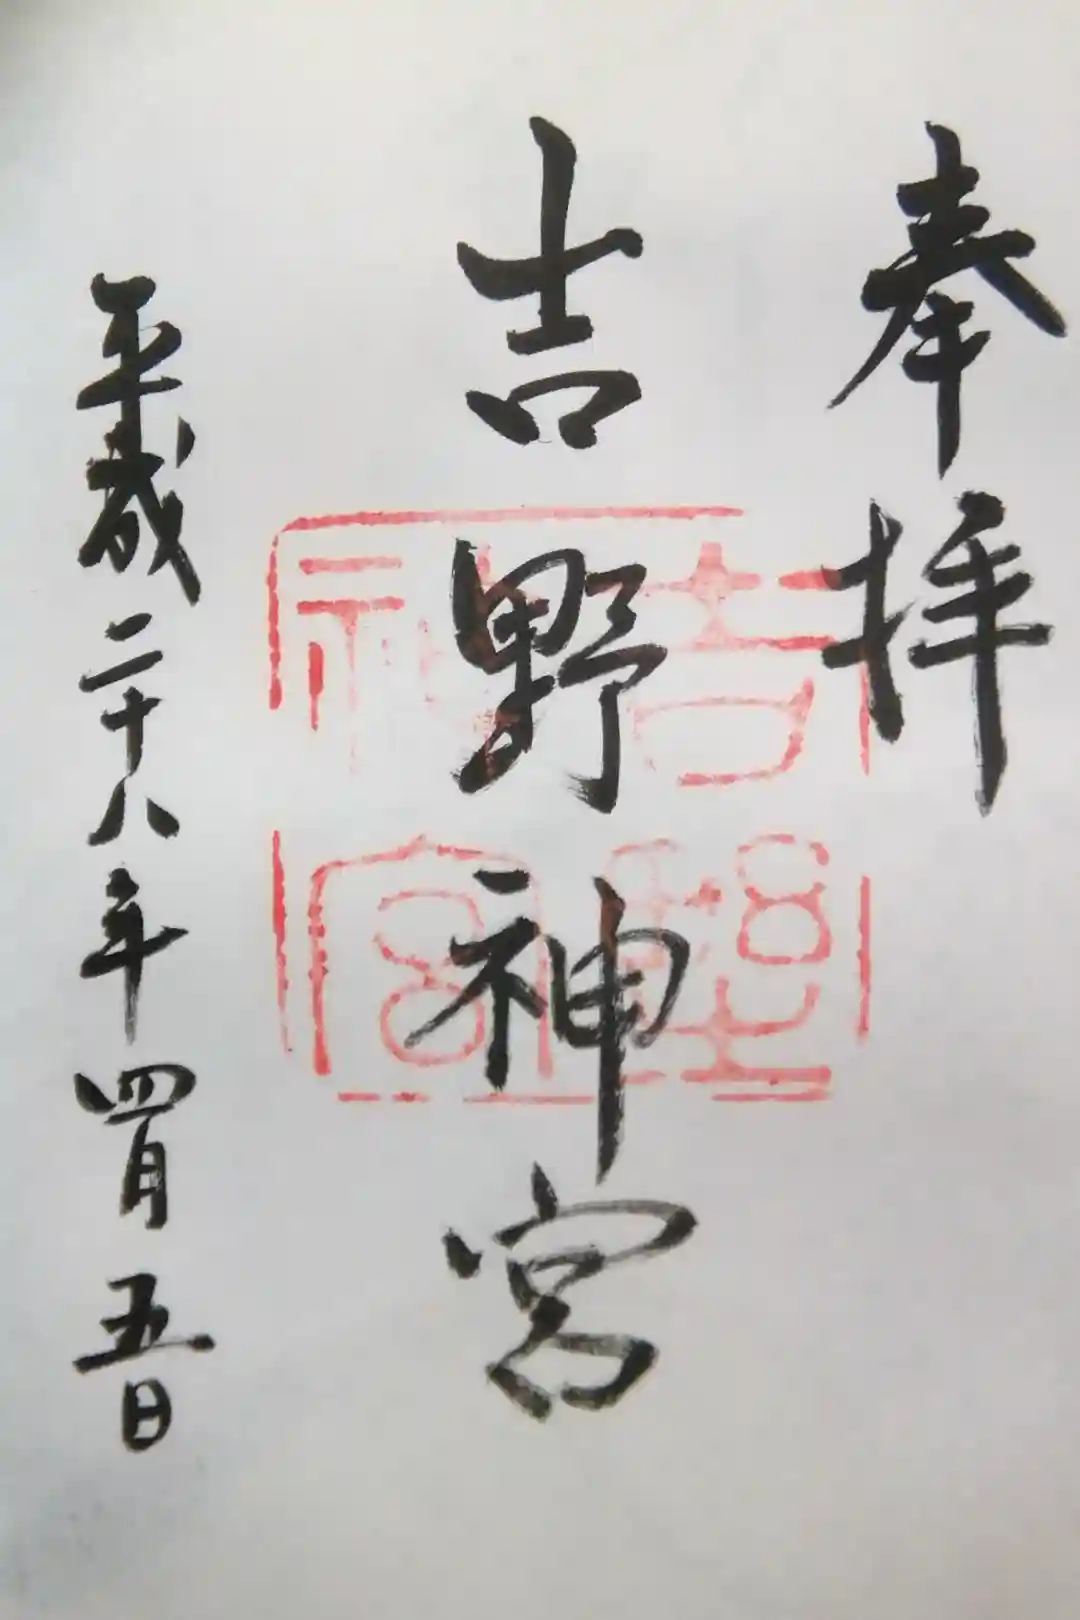 奉拝
吉野神宮
吉野神宮
平成二十八年四月五日